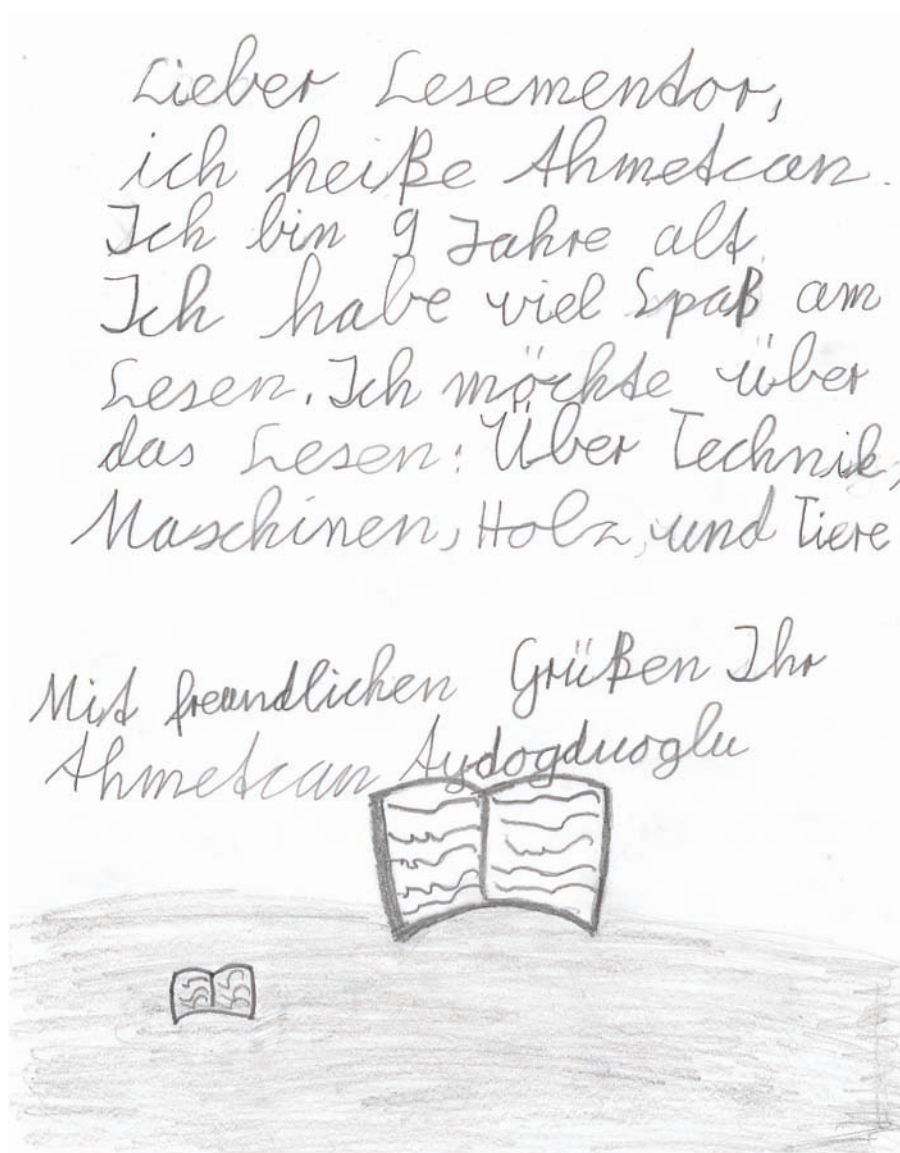 Lieber Lesementor,
ich heiße Ahmetcan.
Ich bin 9 Jahre alt.
Ich habe viel Spaß am
Lesen. Ich möchte über
das Lesen: Über Technik,
Maschinen, Holz, und Tiere
Mit freundlichen Grüßen Ihr
Ahmetcan Aydogduoglu